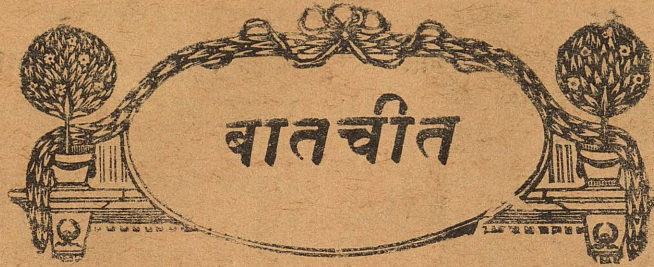 बातचीत